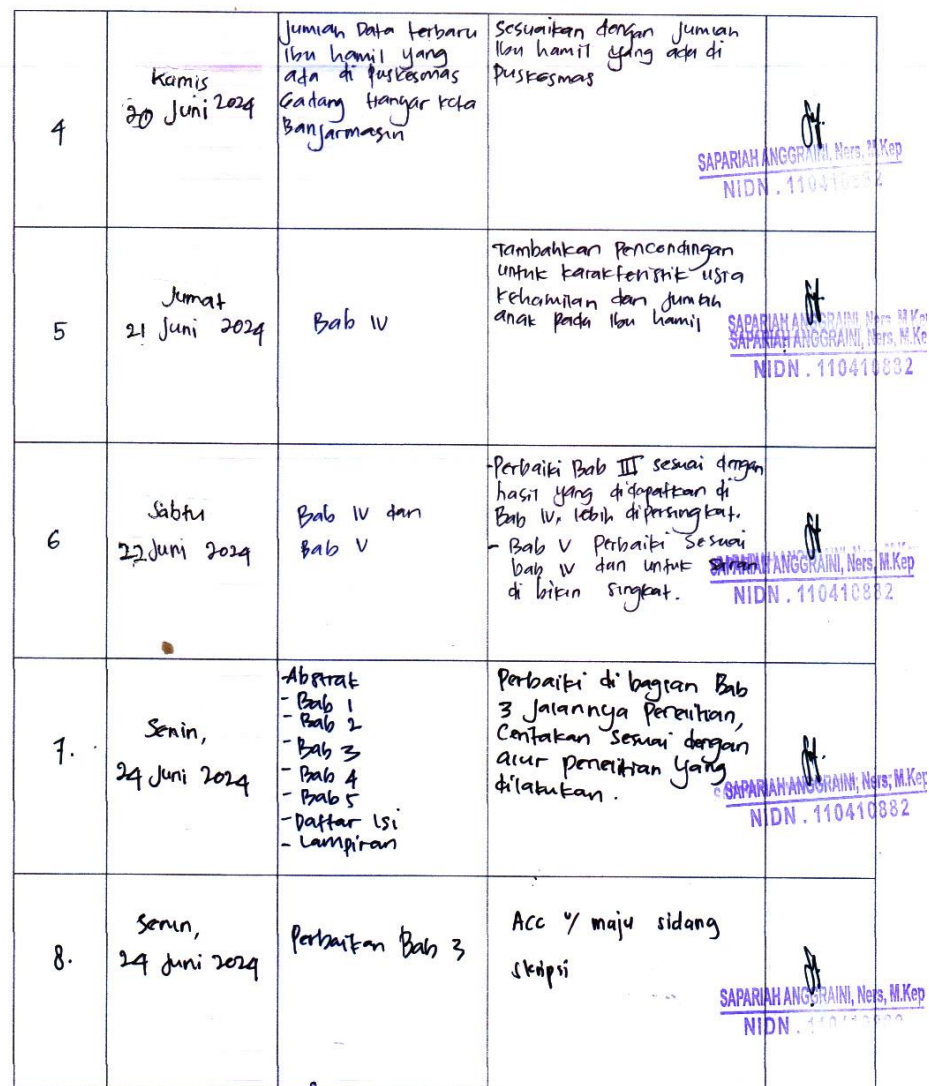 4
Kamis
20 Juni 2024
Jumlah Data terbaru
Ibu hamil yang
ada di Puskesmas
Gadang Hangar kota
Banjarmasin
Sesuaikan dengan Jumlah
Ibu hamil yang ada di
Puskesmas
SAPARIAH ANGGRAINI, Ners, M.Kep
NIDN . 110410882
5
Jumat
21 Juni 2024
Bab IV
Tambahkan Pencondingan
untuk karakteristik usia
kehamilan dan Jumlah
anak pada Ibu hamil
SAPARIAH ANGGRAINI, Ners, M.Kep
SAPARIAH ANGGRAINI, Ners, M.Ke
NIDN . 110410882
6
Sabtu
22 Juni 2024
Bab IV dan
Bab V
-Perbaiki Bab III sesuai dengan
hasil yang didapatkan di
Bab IV, lebih dipersingkat.
- Bab V Perbaiki Sesuai
bab IV dan untuk saran
di bikin singkat.
SAPARIAH ANGGRAINI, Ners, M.Kep
NIDN . 110410882
7.
Senin,
24 Juni 2024
-Abstrak
- Bab 1
- Bab 2
- Bab 3
- Bab 4
- Bab 5
-Daftar Isi
- Lampiran
Perbaiki di bagian Bab
3 Jalannya Penelitian,
Ceritakan Sesuai dengan
alur penelitian yang
dilakukan.
SAPARIAH ANGGRAINI, Ners, M.Kep
NIDN . 110410882
8.
Senin,
24 Juni 2024
Perbaikan Bab 3
Acc u/ maju sidang
skripsi
SAPARIAH ANGGRAINI, Ners, M.Kep
NIDN .